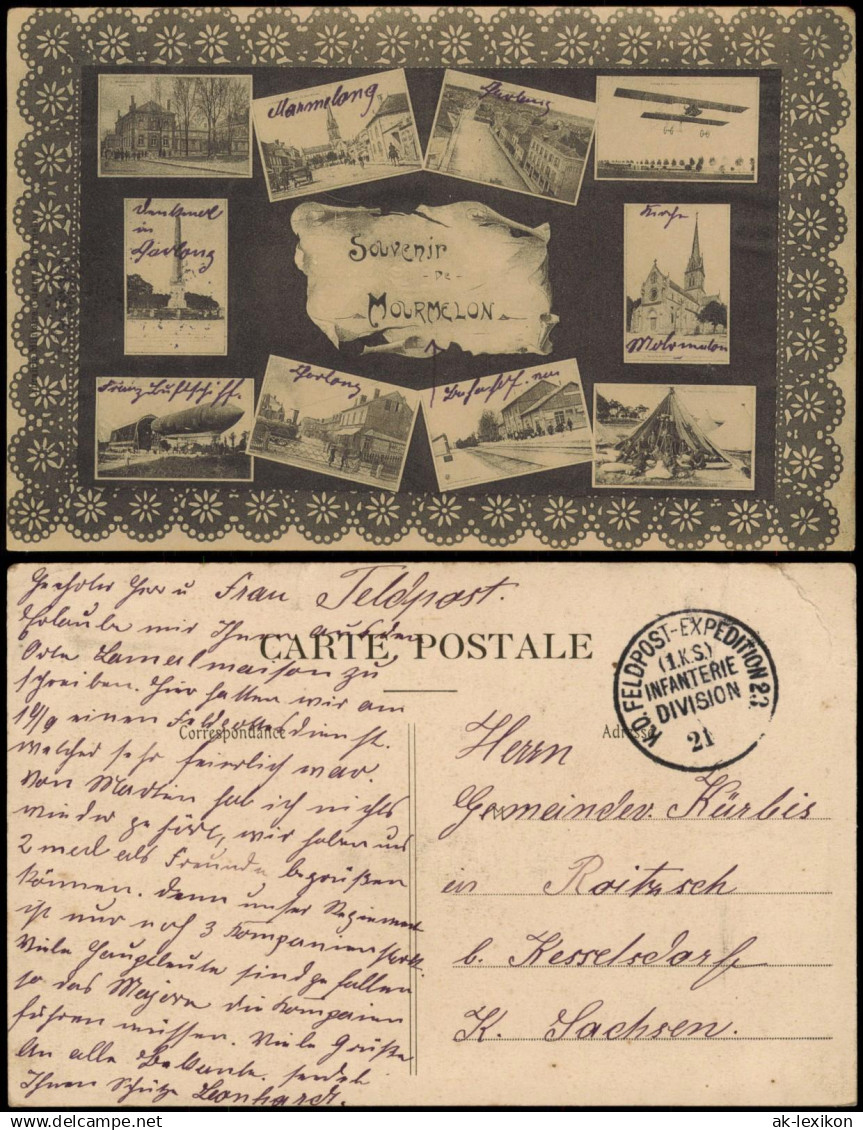 Marmelong
Garlong
Denkmal
in
Garlong
Souvenir
- De -
Mourmelon
Kirche
Molomelon
Franz. Luftschiff
Garlong
Bahnhof. neu
Geehrter Herr u. Frau
Feldpost.
Erlaube mir Ihnen aus dem
Orte zu
schreiben. Hier hatten wir am
19/9 einen Feldgottesdienst.
welcher sehr feierlich war.
Von Martin hab ich nichts
wieder gehört, wir haben uns
2 mal als Freunde begrüßen
können. denn unser Regiment
ist nur noch 3 Kompanien stark.
Viele Hauptleute sind gefallen
so das Majore die Kompaien
führen müssen. Viele Grüße
An alle Bekante. sendet
Ihnen Schütze Leonhardt.
CARTE POSTALE
Correspondance
Adresse
KD. FELDPOST-EXPEDITION 23.
(1.K.S.)
INFANTERIE
DIVISION
21
Herrn
Gemeindev. Kürbis
in Roitzsch
b. Kesselsdorf
K. Sachsen.
ak-lexikon